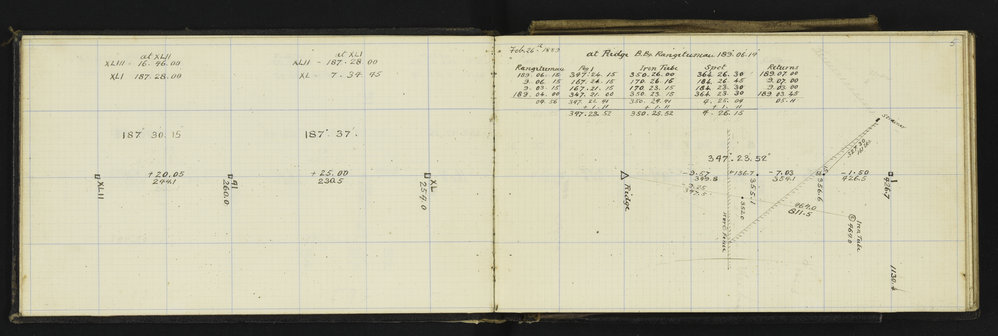 at XLII
XLIII - 16. 46. 00
XLI 187. 28. 00
at XLI
XLII - 187. 28. 00
XL - 7. 34. 45
187° 30. 15
187°. 37'.
+ 20.05
244.1
+ 25.00
230.5
XLII
41
260.0
XL
259.0
5
Feb. 26th 1889
at Ridge B.Bs. Rangitumau. 189°. 06. 14
Rangitumau Peg 1 Iron Tube Spot Returns
189. 06. 15 347. 24. 15 350. 26. 00 364. 26. 30 189. 07. 00
9. 06. 15 167. 24. 15 170. 26. 15 184. 26. 45 9. 07. 00
9. 03. 15 167. 21. 15 170. 23. 15 184. 23. 30 9. 03. 00
189. 04. 00 347. 21. 00 350. 23. 15 364. 23. 30 189. 03. 45
04. 56 347. 22. 41 350. 24. 41 4. 25. 04 05. 11
+ 1. 11 + 1. 11 + 1. 11
347. 23. 52 350. 25. 52 4. 26. 15
347°. 23. 52"
- 9.57
349.8
+ 136.7
- 7.03
354.1
- 1.50
426.5
Ridge
355.1
356.6
1
426.7
352.0
464.0
811.5
Iron Tube
464.0
1130.4